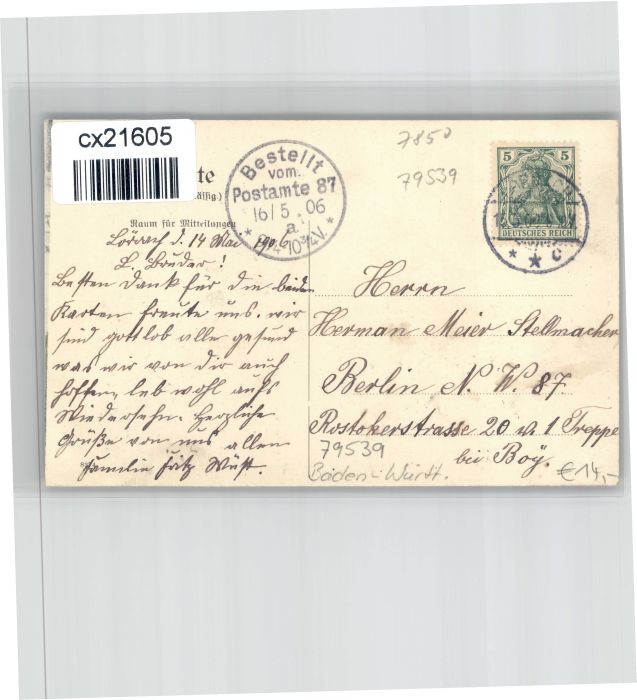 cx21605
te
Bestellt
vom
Postamte 87
16/5.06
a
V.
7850
79539
5 5
DEUTSCHES REICH
* * c
Raum für Mitteilungen
Lörrach d. 14 Mai 1906
L. Bruder!
Besten Dank für die beiden
Karten freute uns. wir
sind gottlob alle gesund
was wir von dir auch
hoffen, leb wohl aufs
Wiedersehn. Herzliche
Grüße von uns allen
Familie Fritz Wüst.
Herrn
Herman Meier Stellmacher
Berlin N. W. 87
Rostokerstrasse 20 1 Treppe
bei Boÿ.
79539
Baden-Württ.
€14,-